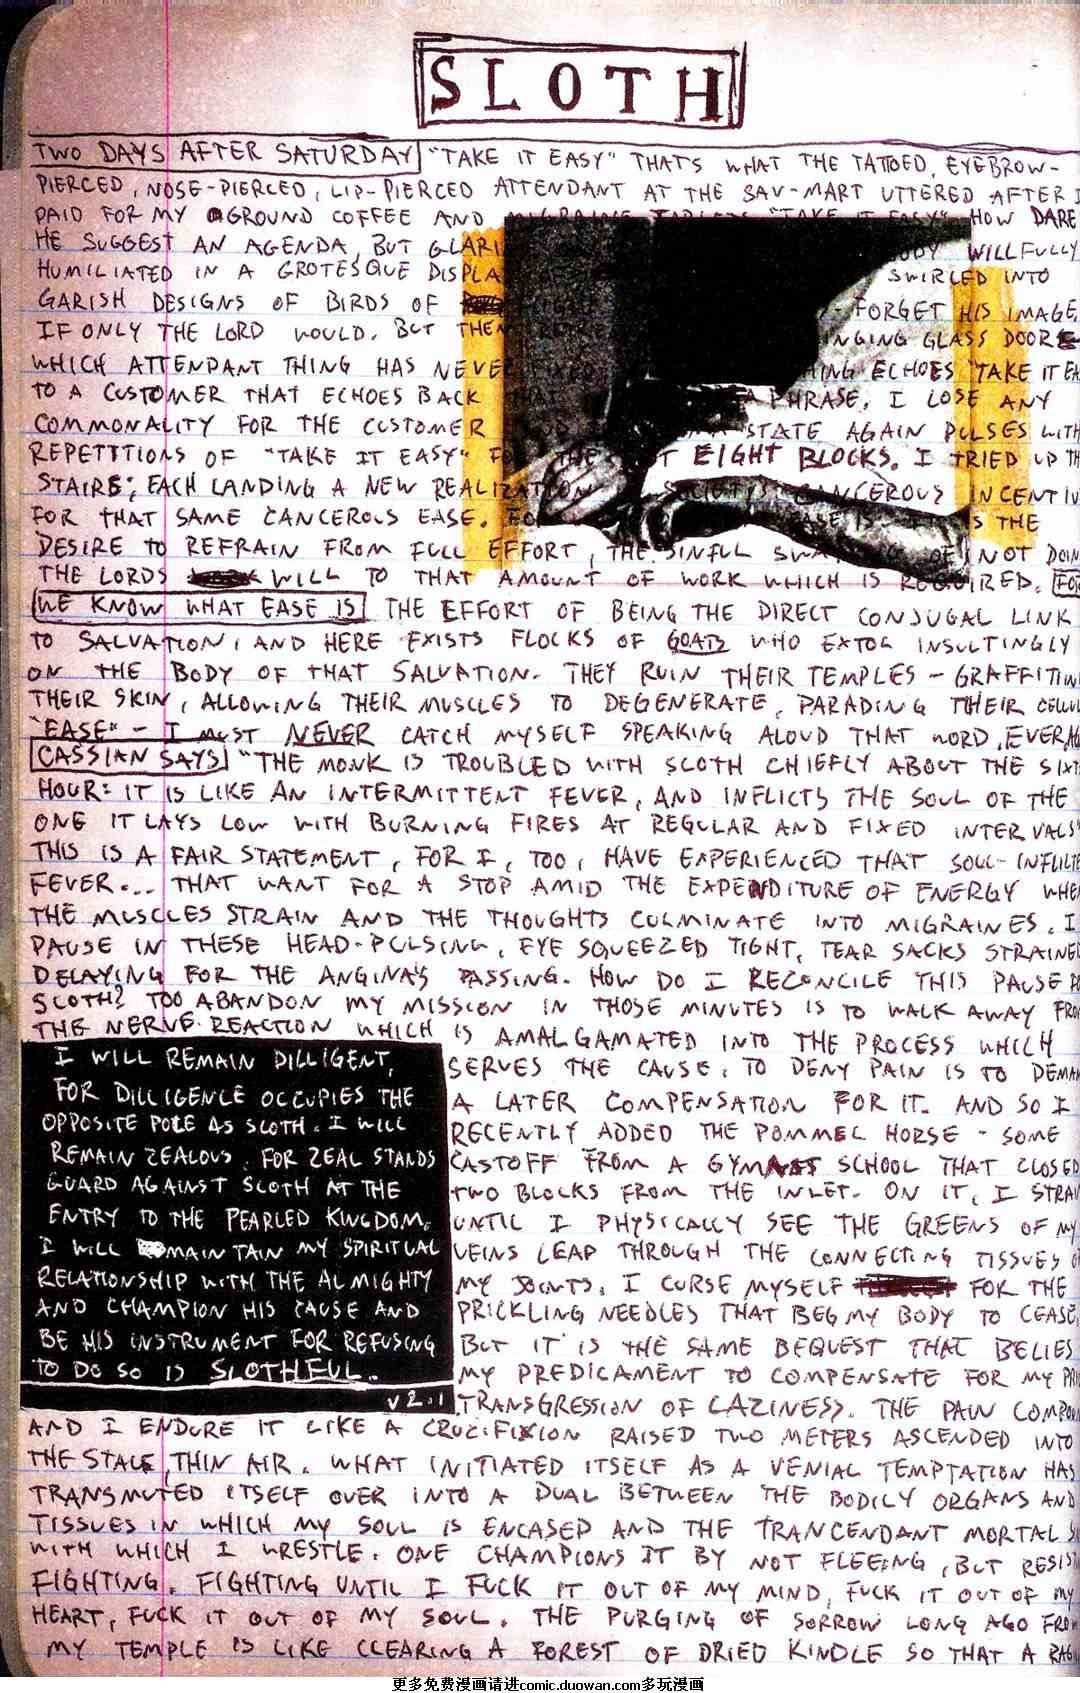 SLOTH
TWO DAYS AFTER SATURDAY "TAKE IT EASY" THAT'S WHAT THE TATTOED, EYEBROW-
PIERCED, NOSE-PIERCED, LIP-PIERCED ATTENDANT AT THE SAV-MART UTTERED AFTER I
PAID FOR MY GROUND COFFEE AND MIGRAINE TABLETS "TAKE IT EASY" HOW DARE
HE SUGGEST AN AGENDA, BUT GLARI BODY WILLFULLY
HUMILIATED IN A GROTESQUE DISPLA SWIRLED INTO
GARISH DESIGNS OF BIRDS OF FORGET HIS IMAGE,
IF ONLY THE LORD WOULD. BUT THEN INGING GLASS DOOR
WHICH ATTENDANT THING HAS NEVER FIXED HING ECHOES "TAKE IT EA
TO A CUSTOMER THAT ECHOES BACK THAT A PHRASE. I LOSE ANY
COMMONALITY FOR THE CUSTOMER STATE AGAIN PULSES WITH
REPETITIONS OF "TAKE IT EASY" FO THE T EIGHT BLOCKS. I TRIED UP TH
STAIRS; EACH LANDING A NEW REALIZATION SOCIETY'S CANCEROUS INCENTIV
FOR THAT SAME CANCEROUS EASE. FO EASE IS IS THE
DESIRE TO REFRAIN FROM FULL EFFORT, THE SINFUL OF NOT DOIN
THE LORDS WILL TO THAT AMOUNT OF WORK WHICH IS REQUIRED. FOR
WE KNOW WHAT EASE IS THE EFFORT OF BEING THE DIRECT CONJUGAL LINK
TO SALVATION, AND HERE EXISTS FLOCKS OF GOATS WHO EXTOL INSULTINGLY
ON THE BODY OF THAT SALVATION. THEY RUIN THEIR TEMPLES - GRAFFITIIN
THEIR SKIN, ALLOWING THEIR MUSCLES TO DEGENERATE, PARADING THEIR CELLUL
"EASE" - I MUST NEVER CATCH MYSELF SPEAKING ALOUD THAT WORD, EVER AG
CASSIAN SAYS "THE MONK IS TROUBLED WITH SLOTH CHIEFLY ABOUT THE SIXT
HOUR: IT IS LIKE AN INTERMITTENT FEVER, AND INFLICTS THE SOUL OF THE
ONE IT LAYS LOW WITH BURNING FIRES AT REGULAR AND FIXED INTERVALS"
THIS IS A FAIR STATEMENT, FOR I, TOO, HAVE EXPERIENCED THAT SOUL-INFLICTE
FEVER... THAT WANT FOR A STOP AMID THE EXPENDITURE OF ENERGY WHEN
THE MUSCLES STRAIN AND THE THOUGHTS CULMINATE INTO MIGRAINES. I
PAUSE IN THESE HEAD-PULSING, EYE SQUEEZED TIGHT, TEAR SACKS STRAINED
DELAYING FOR THE ANGINA'S PASSING. HOW DO I RECONCILE THIS PAUSE FO
SLOTH? TOO ABANDON MY MISSION IN THOSE MINUTES IS TO WALK AWAY FROM
THE NERVE-REACTION WHICH IS AMALGAMATED INTO THE PROCESS WHICH
SERVES THE CAUSE. TO DENY PAIN IS TO DEMAN
A LATER COMPENSATION FOR IT. AND SO I
RECENTLY ADDED THE POMMEL HORSE - SOME
CASTOFF FROM A GYMNAST SCHOOL THAT CLOSED
TWO BLOCKS FROM THE INLET. ON IT, I STRAI
UNTIL I PHYSICALLY SEE THE GREENS OF MY
VEINS LEAP THROUGH THE CONNECTING TISSUES O
MY JOINTS. I CURSE MYSELF FOR THE
PRICKLING NEEDLES THAT BEG MY BODY TO CEASE,
BUT IT IS THE SAME BEQUEST THAT BELIES
MY PREDICAMENT TO COMPENSATE FOR MY PRI
TRANSGRESSION OF LAZINESS. THE PAIN COMPOUN
I WILL REMAIN DILLIGENT,
FOR DILLIGENCE OCCUPIES THE
OPPOSITE POLE AS SLOTH. I WILL
REMAIN ZEALOUS. FOR ZEAL STANDS
GUARD AGAINST SLOTH AT THE
ENTRY TO THE PEARLED KINGDOM.
I WILL MAINTAIN MY SPIRITUAL
RELATIONSHIP WITH THE ALMIGHTY
AND CHAMPION HIS CAUSE AND
BE HIS INSTRUMENT FOR REFUSING
TO DO SO IS SLOTHFUL.
V2.1
AND I ENDURE IT LIKE A CRUCIFIXION RAISED TWO METERS ASCENDED INTO
THE STALE, THIN AIR. WHAT INITIATED ITSELF AS A VENIAL TEMPTATION HAS
TRANSMUTED ITSELF OVER INTO A DUAL BETWEEN THE BODILY ORGANS AND
TISSUES IN WHICH MY SOUL IS ENCASED AND THE TRANCENDANT MORTAL SI
WITH WHICH I WRESTLE. ONE CHAMPIONS IT BY NOT FLEEING, BUT RESIST
FIGHTING. FIGHTING UNTIL I FUCK IT OUT OF MY MIND, FUCK IT OUT OF MY
HEART, FUCK IT OUT OF MY SOUL. THE PURGING OF SORROW LONG AGO FROM
MY TEMPLE IS LIKE CLEARING A FOREST OF DRIED KINDLE SO THAT A RAG
更多免费漫画请进comic.duowan.com多玩漫画